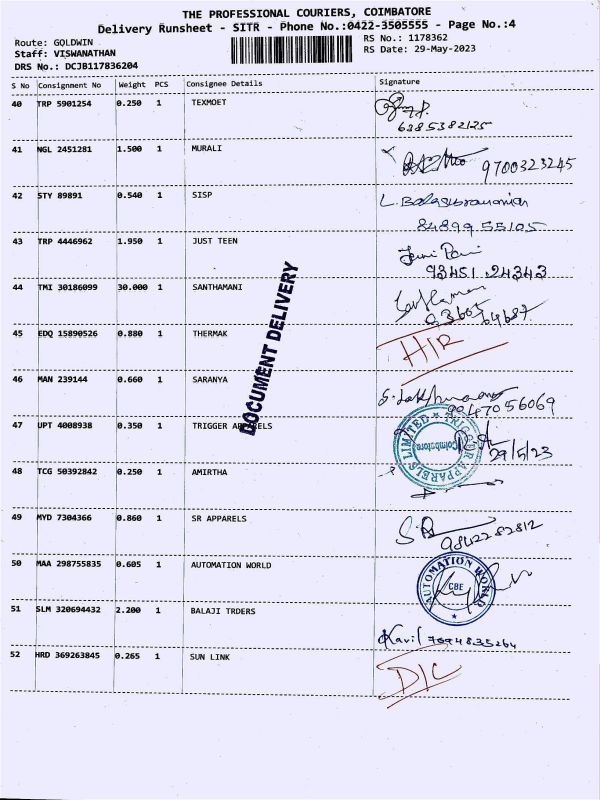 THE PROFESSIONAL COURIERS, COIMBATORE
Delivery Runsheet - SITR - Phone No.:0422-3505555 - Page No.:4
Route: GOLDWIN
RS No.: 1178362
Staff: VISWANATHAN
RS Date: 29-May-2023
DRS No.: DCJB117836204
S No Consignment No Weight PCS Consignee Details Signature
40 TRP 5901254 0.250 1 TEXMOET
6385382125
41 NGL 2451281 1.500 1 MURALI
9700323245
42 STY 89891 0.540 1 SISP
L. Balasubramanian
84899 55105
43 TRP 4446962 1.950 1 JUST TEEN
93451 24343
44 TMI 30186099 30.000 1 SANTHAMANI
45 EDQ 15890526 0.880 1 THERMAK
DOCUMENT DELIVERY
46 MAN 239144 0.660 1 SARANYA
90470 56069
47 UPT 4008938 0.350 1 TRIGGER APPARELS
TRIGGER APPARELS LIMITED
Coimbatore
29/5/23
48 TCG 50392842 0.250 1 AMIRTHA
49 MYD 7304366 0.860 1 SR APPARELS
9842282812
50 MAA 298755835 0.605 1 AUTOMATION WORLD
AUTOMATION WORLD
CBE
51 SLM 320694432 2.200 1 BALAJI TRDERS
52 HRD 369263845 0.265 1 SUN LINK
D/C